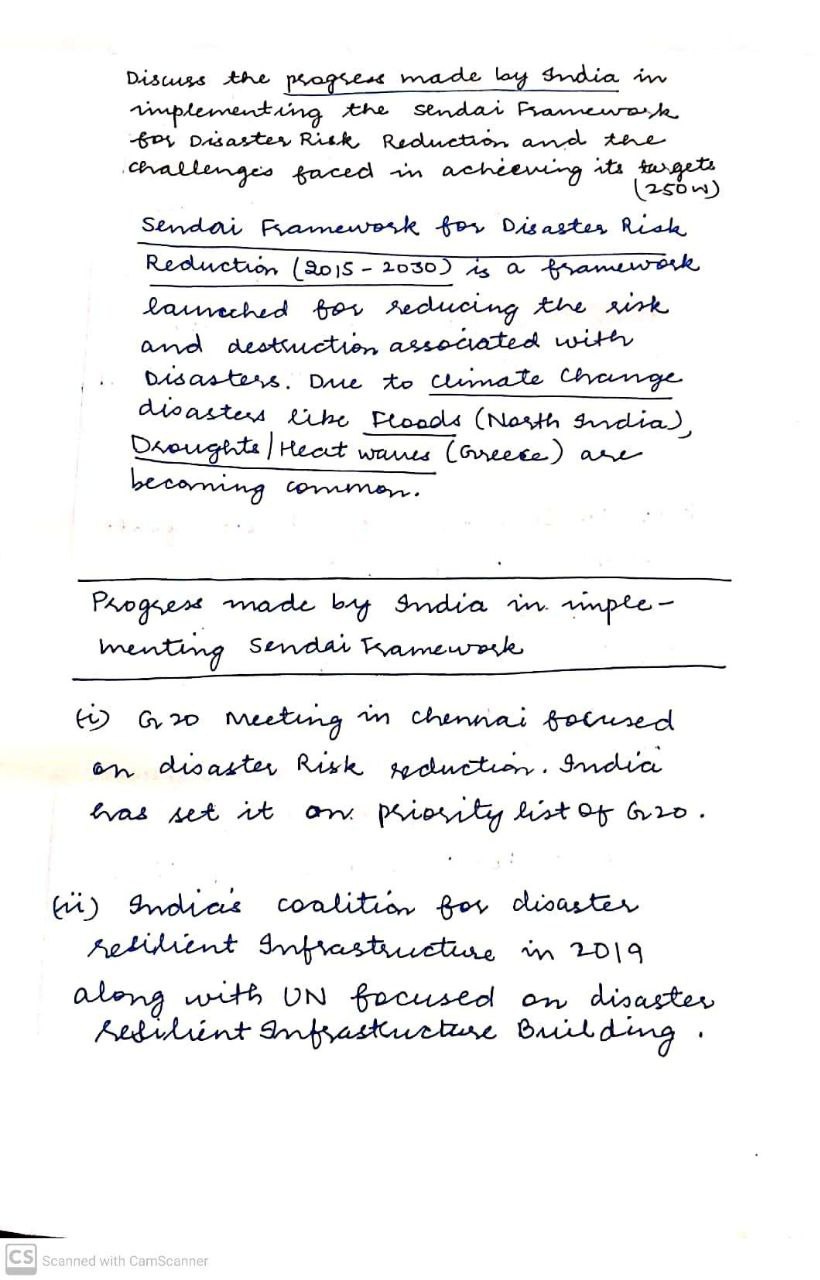 Discuss the progress made by India in
implementing the Sendai Framework
for Disaster Risk Reduction and the
challenges faced in achieving its targets
(250w)
Sendai Framework for Disaster Risk
Reduction (2015 - 2030) is a framework
launched for reducing the risk
and destruction associated with
Disasters. Due to climate change
disasters like Floods (North India),
Droughts/Heat waves (Greece) are
becoming common.
Progress made by India in imple-
menting Sendai Framework
(i) G20 Meeting in Chennai focused
on disaster Risk reduction. India
has set it on priority list of G20.
(ii) India's coalition for disaster
resilient Infrastructure in 2019
along with UN focused on disaster
resilient Infrastructure Building.
CS Scanned with CamScanner